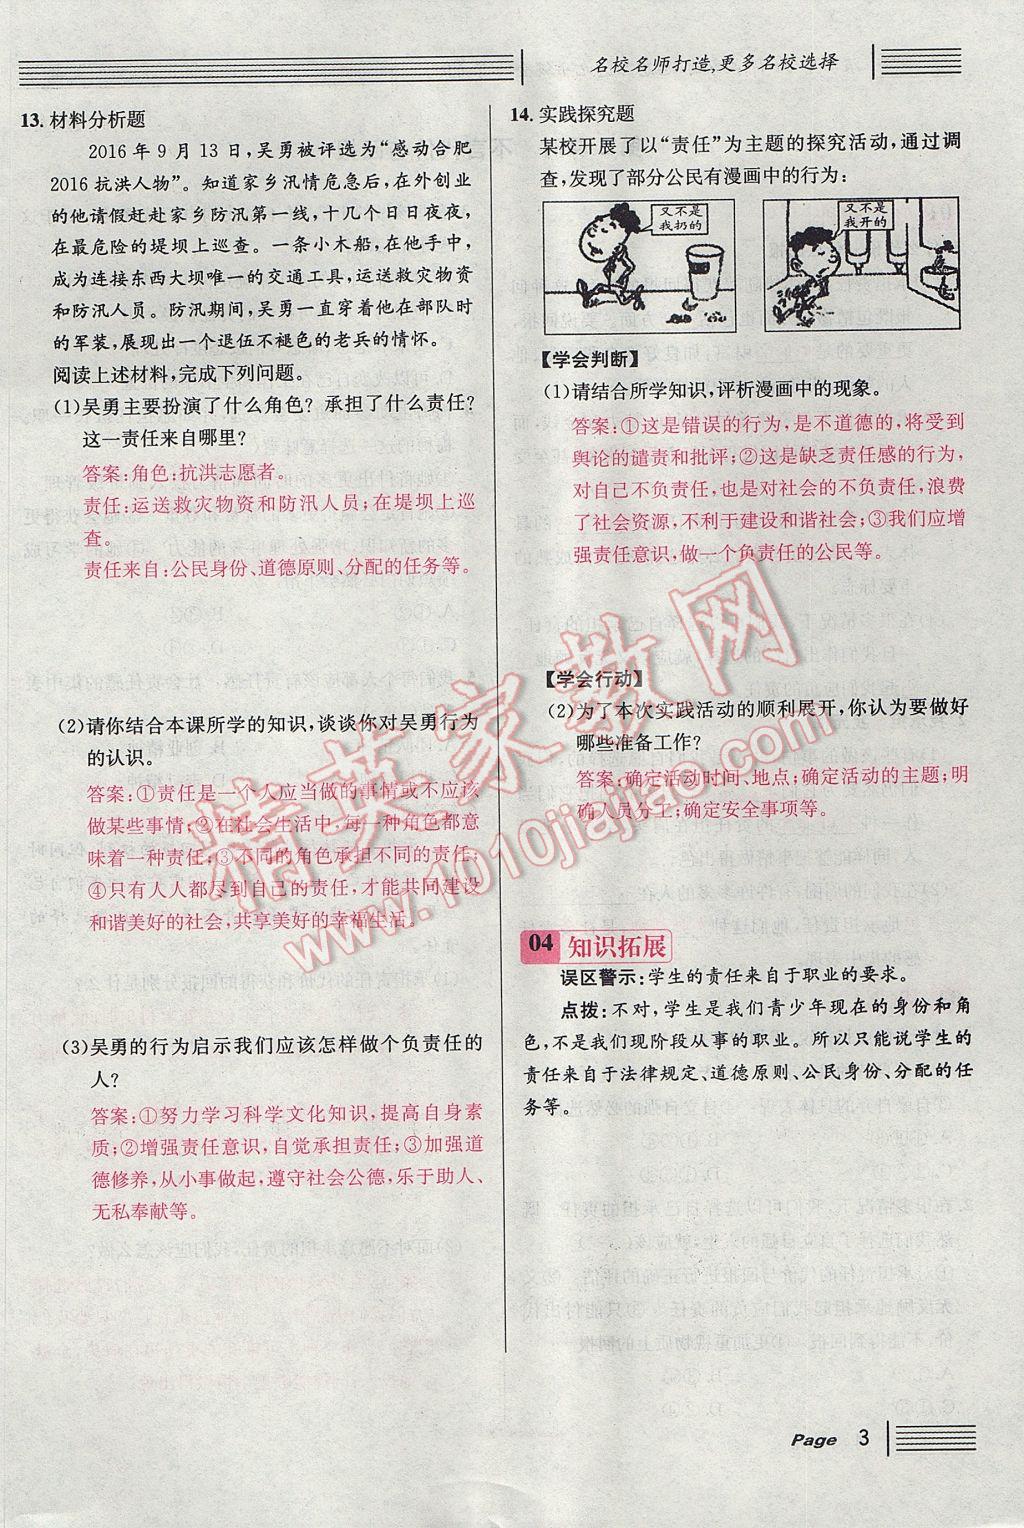 名校名师打造,更多名校选择
13. 材料分析题
2016年9月13日,吴勇被评选为“感动合肥
2016抗洪人物”。知道家乡汛情危急后,在外创业
的他请假赶赴家乡防汛第一线,十几个日日夜夜,
在最危险的堤坝上巡查。一条小木船,在他手中,
成为连接东西大坝唯一的交通工具,运送救灾物资
和防汛人员。防汛期间,吴勇一直穿着他在部队时
的军装,展现出一个退伍不褪色的老兵的情怀。
阅读上述材料,完成下列问题。
(1)吴勇主要扮演了什么角色?承担了什么责任?
这一责任来自哪里?
答案:角色:抗洪志愿者。
责任:运送救灾物资和防汛人员;在堤坝上巡
查。
责任来自:公民身份、道德原则、分配的任务等。
(2)请你结合本课所学的知识,谈谈你对吴勇行为
的认识。
答案:①责任是一个人应当做的事情或不应该
做某些事情;②在社会生活中,每一种角色都意
味着一种责任;③不同的角色承担不同的责任;
④只有人人都尽到自己的责任,才能共同建设
和谐美好的社会,共享美好的幸福生活。
(3)吴勇的行为启示我们应该怎样做个负责任的
人?
答案:①努力学习科学文化知识,提高自身素
质;②增强责任意识,自觉承担责任;③加强道
德修养,从小事做起,遵守社会公德,乐于助人、
无私奉献等。
14. 实践探究题
某校开展了以“责任”为主题的探究活动,通过调
查,发现了部分公民有漫画中的行为:
又不是
我扔的
又不是
我开的
【学会判断】
(1)请结合所学知识,评析漫画中的现象。
答案:①这是错误的行为,是不道德的,将受到
舆论的谴责和批评;②这是缺乏责任感的行为,
对自己不负责任,也是对社会的不负责任,浪费
了社会资源,不利于建设和谐社会;③我们应增
强责任意识,做一个负责任的公民等。
【学会行动】
(2)为了本次实践活动的顺利展开,你认为要做好
哪些准备工作?
答案:确定活动时间、地点;确定活动的主题;明
确人员分工;确定安全事项等。
04 知识拓展
误区警示:学生的责任来自于职业的要求。
点拨:不对,学生是我们青少年现在的身份和角
色,不是我们现阶段从事的职业。所以只能说学生的
责任来自于法律规定、道德原则、公民身份、分配的任
务等。
精英家教网
www.1010jiajiao.com
Page 3